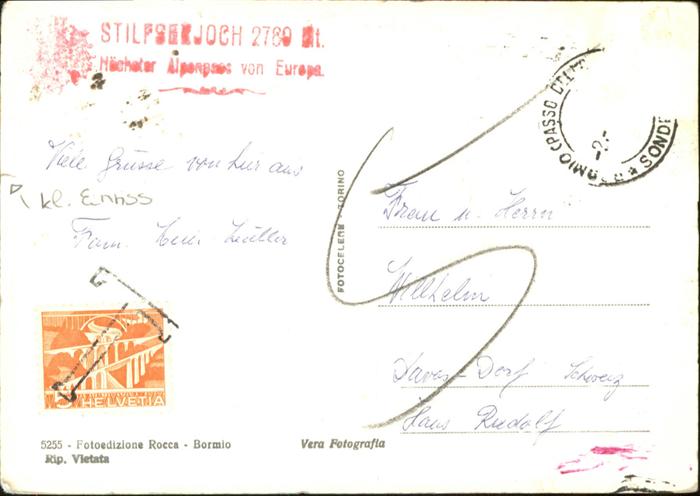 STILFSERJOCH 2760 Mt.
Höchster Alpenpass von Europa.
Viele Grüsse von hier aus
kl. Einriss
Fam. Müller
MIO (PASSO DELLO
SONDR
FOTOCELERE - TORINO
Frau u. Herrn
Wilhelm
Davos-Dorf Schweiz
Haus Rudolf
5
HELVETIA
5255 - Fotoedizione Rocca - Bormio
Rip. Vietata
Vera Fotografia